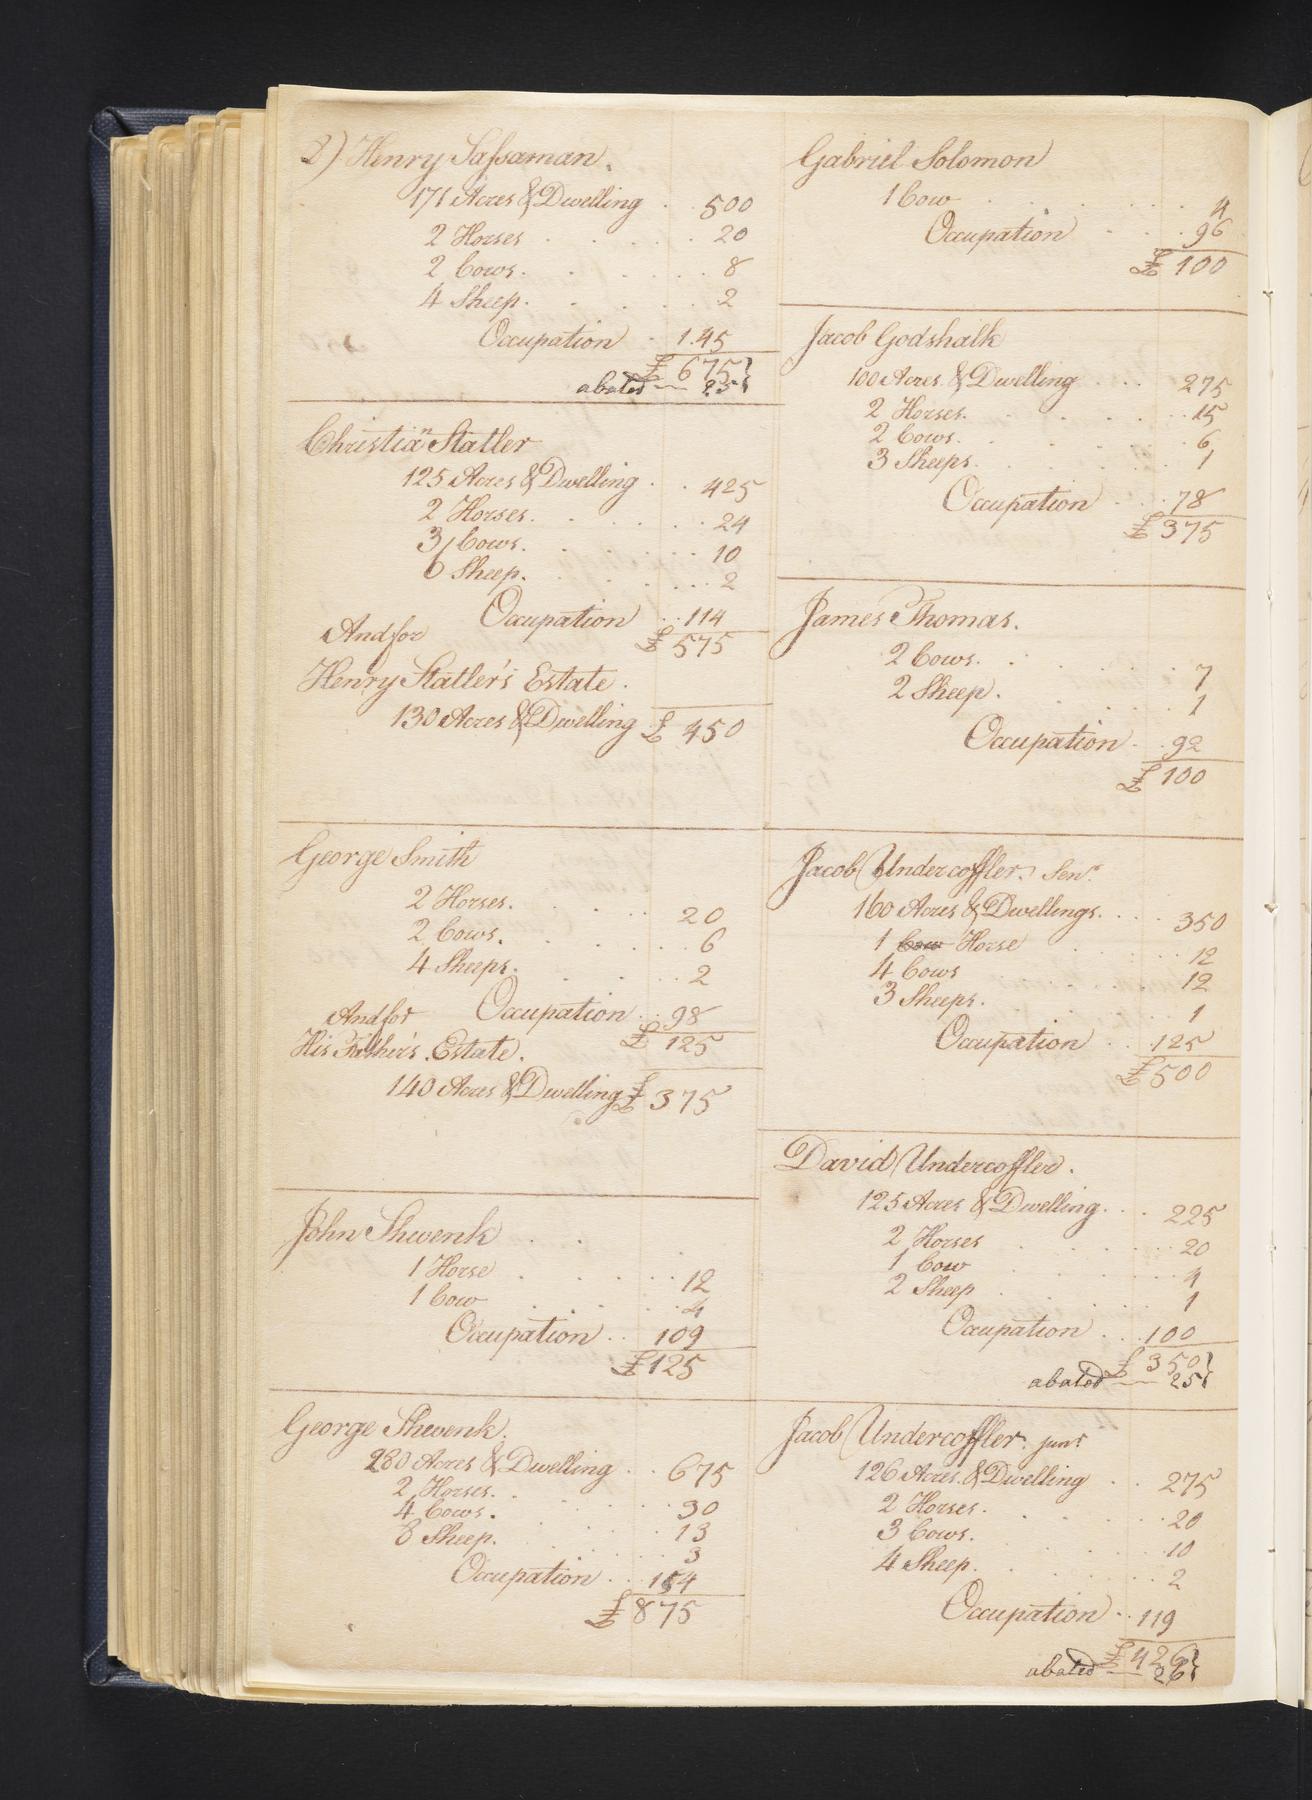 2) Henry Sassaman.
171 Acres & Dwelling . . 500
2 Horses . . . . 20
2 Cows. . . . . 8
4 Sheep. . . . . 2
Occupation . 145
£ 675}
abated — 25}
Christian Statler
125 Acres & Dwelling . . 425
2 Horses. . . . . 24
3 Cows. . . . . 10
6 Sheep. . . . . 2
Occupation . . 114
£ 575
And for
Henry Statler's Estate.
130 Acres & Dwelling £ 450
George Smith
2 Horses. . . . . 20
2 Cows. . . . . 6
4 Sheeps. . . . . 2
Occupation . . 98
And for £ 125
His Father's Estate.
140 Acres & Dwelling £ 375
John Shwenk . .
1 Horse . . . . 12
1 Cow . . . . 4
Occupation . . 109
£ 125
George Shwenk.
280 Acres & Dwelling . . 675
2 Horses. . . . . 30
4 Cows. . . . . 13
8 Sheep. . . . . 3
Occupation . . 154
£ 875
Gabriel Solomon
1 Cow . . . . 4
Occupation . . 96
£ 100
Jacob Godshalk
100 Acres & Dwelling . . . 275
2 Horses. . . . . 15
2 Cows. . . . . 6
3 Sheeps. . . . . 1
Occupation . . 78
£ 375
James Thomas.
2 Cows. . . . . 7
2 Sheep. . . . . 1
Occupation . . 92
£ 100
Jacob Undercoffler. Senr.
160 Acres & Dwellings. . . . 350
1 Cow Horse . . . . 12
4 Cows . . . . 12
3 Sheeps. . . . . 1
Occupation . . 125
£ 500
David Undercoffler.
125 Acres & Dwelling. . . . 225
2 Horses . . . . 20
1 Cow . . . . 4
2 Sheep . . . . 1
Occupation . . . 100
£ 350}
abated — 25}
Jacob Undercoffler. junr
126 Acres. & Dwelling . . 275
2 Horses. . . . . 20
3 Cows. . . . . 10
4 Sheep. . . . . 2
Occupation . . 119
£ 426}
abated — 26}